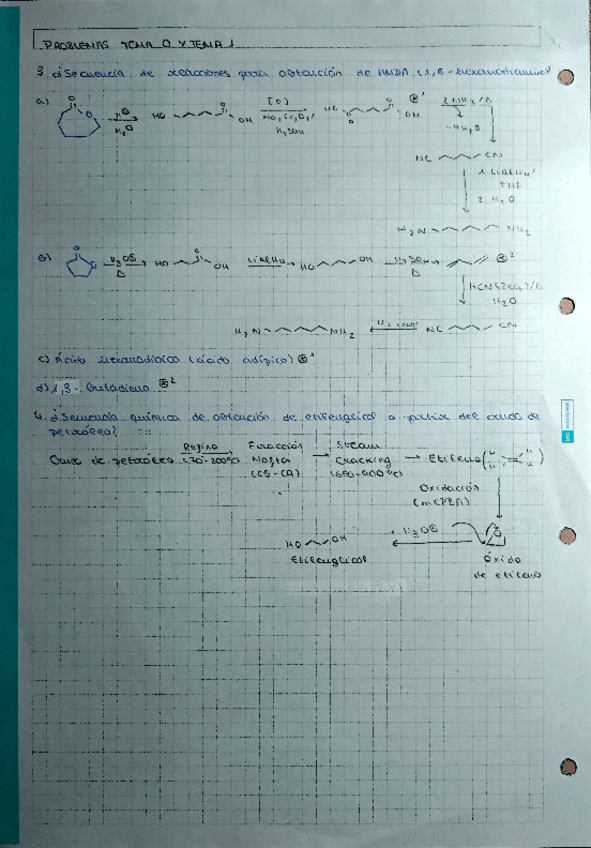 PROBLEMAS TEMA 0 Y TEMA 1
3. ¿Secuencia de reacciones para obtención de HMDA (1,6-hexanodiamina)?
a) O O H⊕ H₂O HO O OH [O] Na₂Cr₂O₇/ H₂SO₄ HO O O OH ⊛¹ 2NH₃/Δ
-H₂O
NC CN
1. LiAlH₄/
THF
2. H₂O
H₂N NH₂
b) O O H₃O⊕ Δ HO O OH LiAlH₄ HO OH H₂SO₄ Δ ⊛²
HCN(2eq)/Δ
H₂O
H₂N NH₂ NC CN
c) Ácido hexanodioico (ácido adípico) ⊛¹
d) 1,3-Butadieno ⊛²
4. ¿Secuencia química de obtención de etilenglicol a partir del crudo de
petróleo?
Crudo de petróleo Refino (70-200ºC) Fracción Nafta (C5-C9) Steam Cracking (650-900ºC) Etileno ( H H H H )
Oxidación
(mCPBA)
HO OH H₃O⊕ O
Etilenglicol Óxido
de etileno